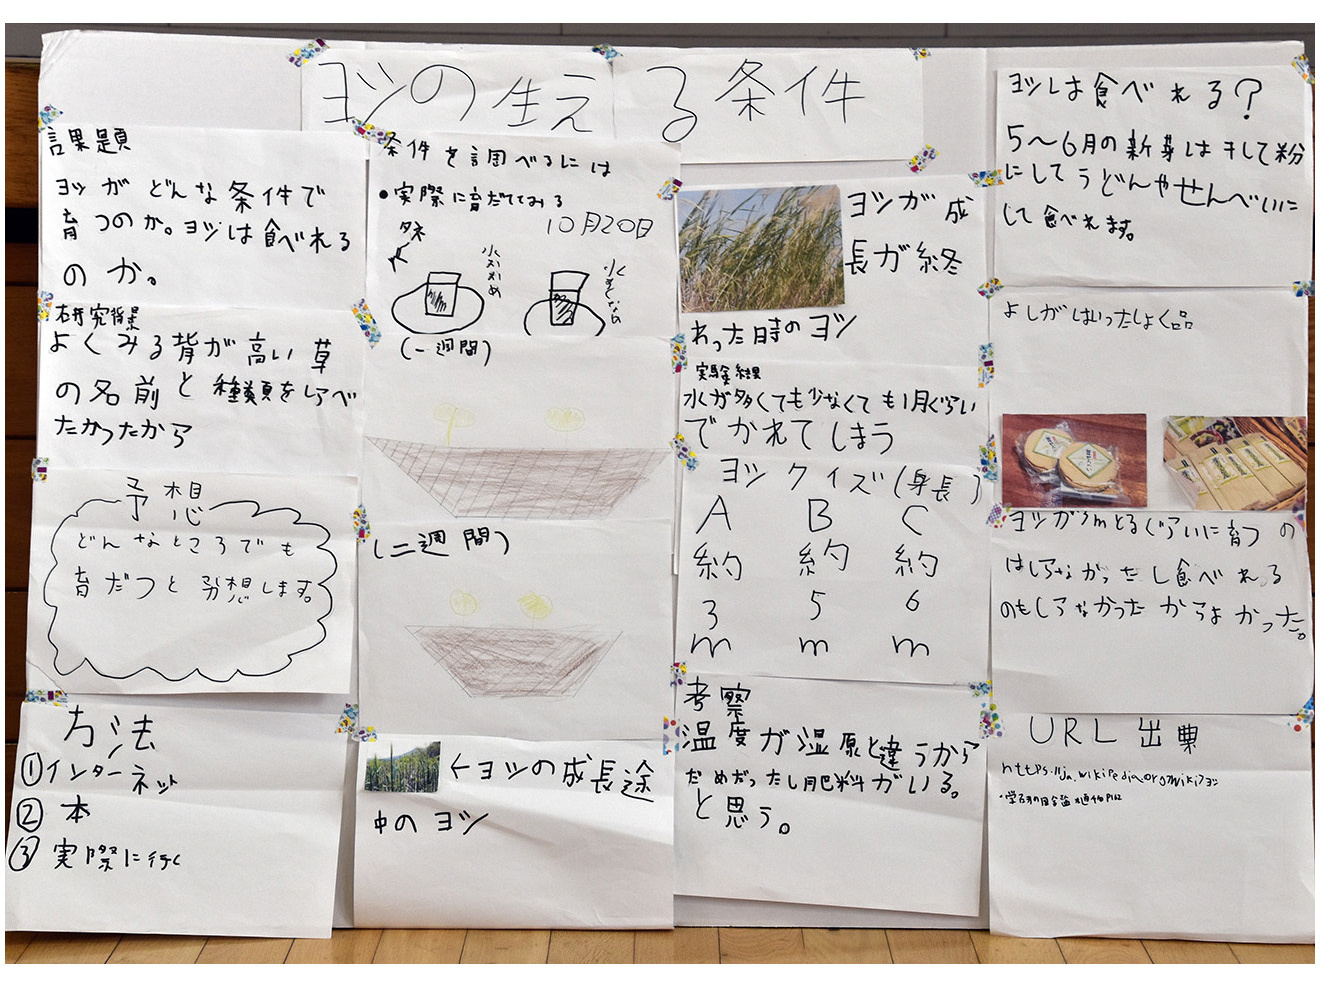 ヨシの生える条件
課題
ヨシがどんな条件で
育つのか。ヨシは食べれる
のか。
研究背景
よくみる背が高い草
の名前と種類をしらべ
たかったから
予想
どんなところでも
育だつと予想します。
方法
①インターネット
②本
③実際に行く
条件を調べるには
•実際に育だててみる
10月20日
水おおめ
水すくなめ
(一週間)
(二週間)
←ヨシの成長途
中のヨシ
ヨシが成
長が終
わった時のヨシ
実験結果
水が多くても少なくても1月ぐらい
でかれてしまう
ヨシクイズ(身長)
A B C
約 約 約
3 5 6
m m m
考察
温度が湿原と違うから
だめだったし肥料がいる。
と思う。
ヨシは食べれる?
5〜6月の新芽は干して粉
にしてうどんやせんべいに
して食べれます。
よしがはいったしょく品
ヨシが5mとるぐらいに育つの
はしらなかったし食べれる
のもしらなかったからよかった。
URL出典